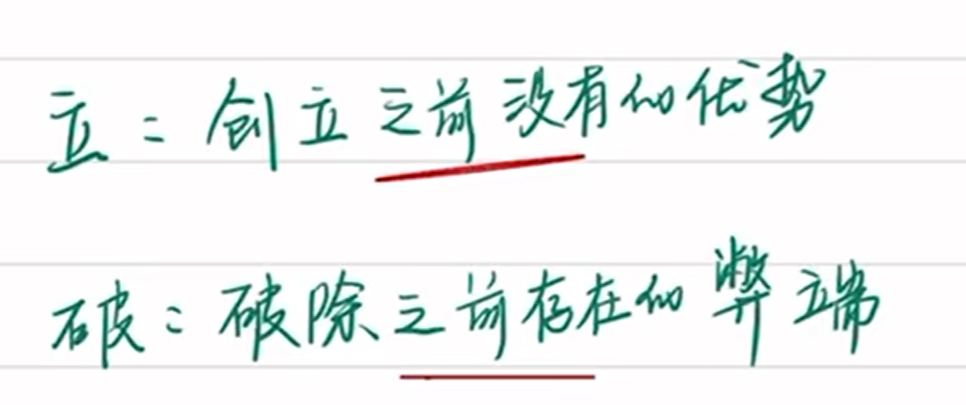 立：创立之前没有的优势
破：破除之前存在的弊端